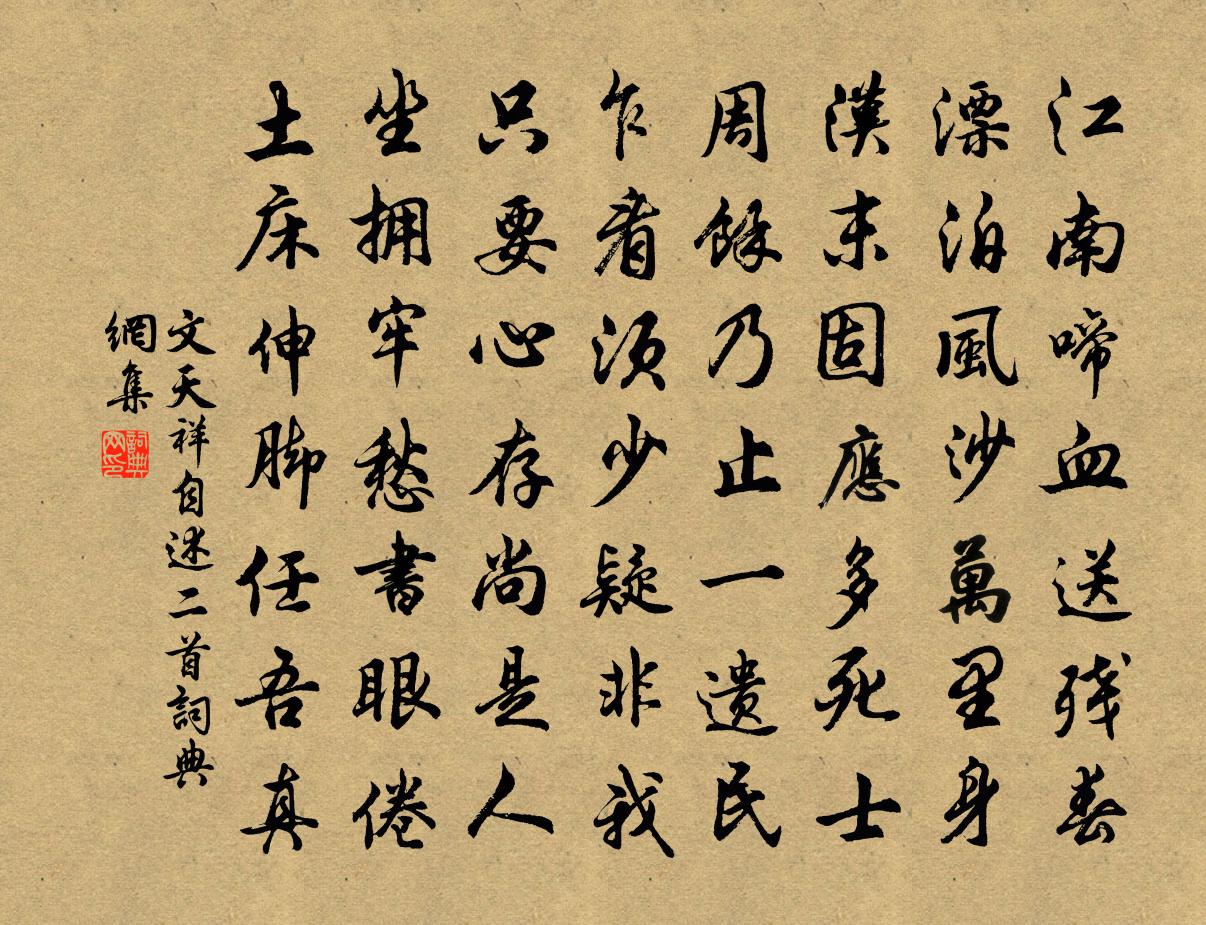 江南啼血送残春
漂泊風沙萬里身
漢末固應多死士
周餘乃止一遺民
乍看須少疑非我
只要心存尚是人
坐擁牢愁書眼倦
土床伸脚任吾真
文天祥自述二首詞典
網集
詞典網印